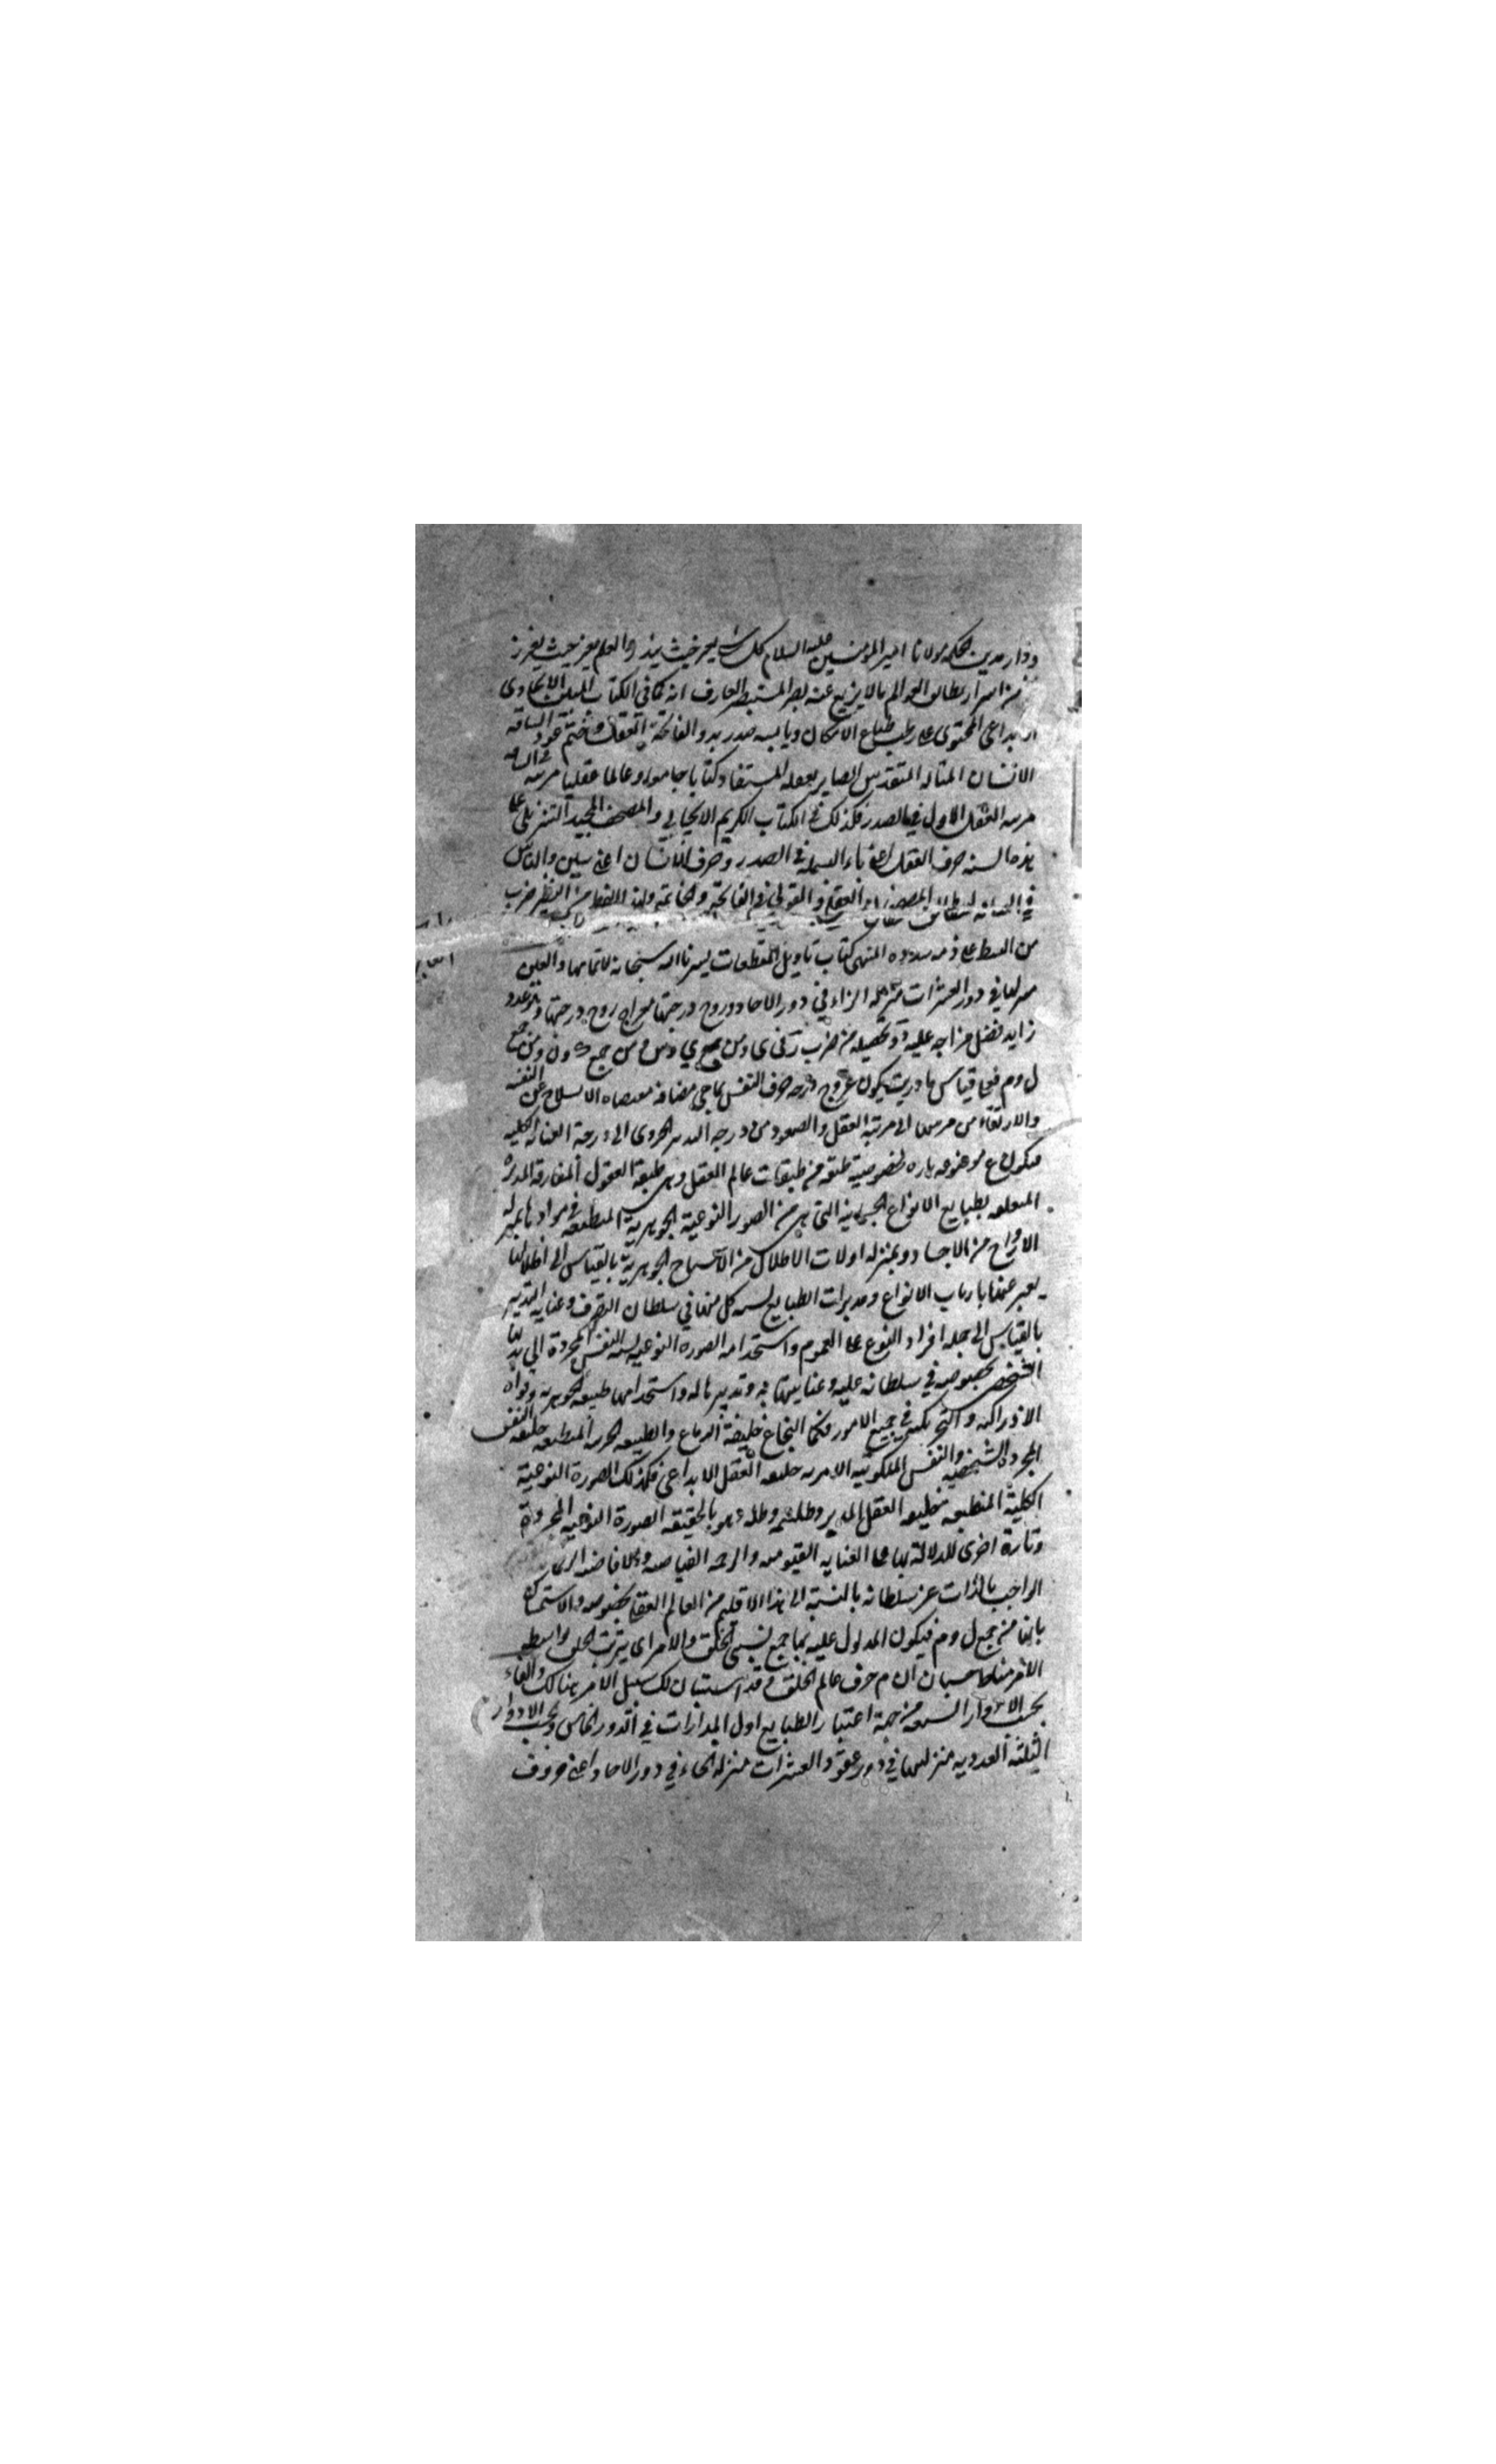 ودار مدينة الحكمة مولانا امير المؤمنين عليه السلام كل شئ يعز حيث ينذر والعلم يعز حيث يغزر
من اسرار تطابق العوالم ما لا يزيغ عنه بصر المستبصر العارف انه كما في الكتاب المبين الايجادى
الابداعى المحتوى على رطب طباع الامكان ويابسه صدر بدو الفاتحة بالعقل وختم عود الساقة
الانسان المتاله المتقدس الصاير بعقله المستفاد كتابا جامعا وعالما عقليا مرتبته
مرتبة العقل الاول في الصدر فكذلك في الكتاب الكريم الايحائي والمصحف المجيد التنزيلى على
هذه السنة حرف العقل اعنى باء البسملة في الصدر وحرف الانسان اعنى سين والناس
العقلى والقولى في الفاتحة والخاتمة ولهذا النمط من النظر ضرب
من البسط على ذمة كتاب تاويل المقطعات يسرنا الله سبحانه لاتمامها والعين
منزلتها في دور العشرات منزلة الزاء في دور الاحاد وروح درجتها معراج روح درجتها وعدد
زايد فضل مزاجه عليه وتحصيله من ضرب ز في ى ومن جمع ى و س ومن جمع ك و ن ومن جمع
ل و م فعلى قياس ما دريت يكون عروج درجة حرف النفس بما هي مضافة الانسلاخ عن النفسية
والارتقاء من مرتبتها الى مرتبة العقل والصعود من درجة التدبير الجزوى الى درجة العناية الكلية
فيكون ع موضوعة تارة لخصوصية طبقة من طبقات عالم العقل وهى طبقة العقول المفارقة المدبرة
المتعلقة بطبايع الانواع الجرمانية التي هي من الصور النوعية الجوهرية المنطبعة في موادها بمنزلة
الارواح من الاجساد وبمنزلة اولات الاظلال من الاشباح الجوهرية بالقياس الى اظلالها
يعبر عنها بارباب الانواع ومدبرات الطبايع نسبة كل منها في سلطان التصرف وعناية التدبير
بالقياس الى جملة افراد النوع على العموم واستخدامه الصورة النوعية نسبة النفس المجردة الى بدنها
الشخصى بخصوصه في سلطانه عليه وعنايتها به وتدبيرها له واستخدامها طبيعته الجوهرية وقواه
الادراكية والتحريكية في جميع الامور فكما النخاع خليفة الدماغ والطبيعة الجرمية المنطبعة خليفة النفس
المجردة الشخصية والنفس الملكوتية الامرية خليفة العقل الابداعى فكذلك الصورة النوعية
الكلية المنطبعة خليفة العقل المدبر وطلسمه وظله وهو بالحقيقة الصورة النوعية المجردة
وتارة اخرى للدلالة بها على العناية القيومية والرحمة الفياضية والافاضة
الواجب بالذات عز سلطانه بالنسبة الى هذا الاقليم من العالم العقلى بخصوصه والاستمساك
بانها من جمع ل و م فيكون المدلول عليه بها جمع نسبتى الخلق والامر اى بترتيب الخلق بواسطة
الامر مناط حسبان ان م حرف عالم الخلق وقد استبان لك سبيل الامر هنالك والفاء
بحسب الادوار السبعة من جهة اعتبار الطبايع اول المدارات في الدور الخامس وبحسب الادوار
الثلثة العددية منزلتها في دور عقود العشرات منزلة الحاء في دور الاحاد اعنى حروف